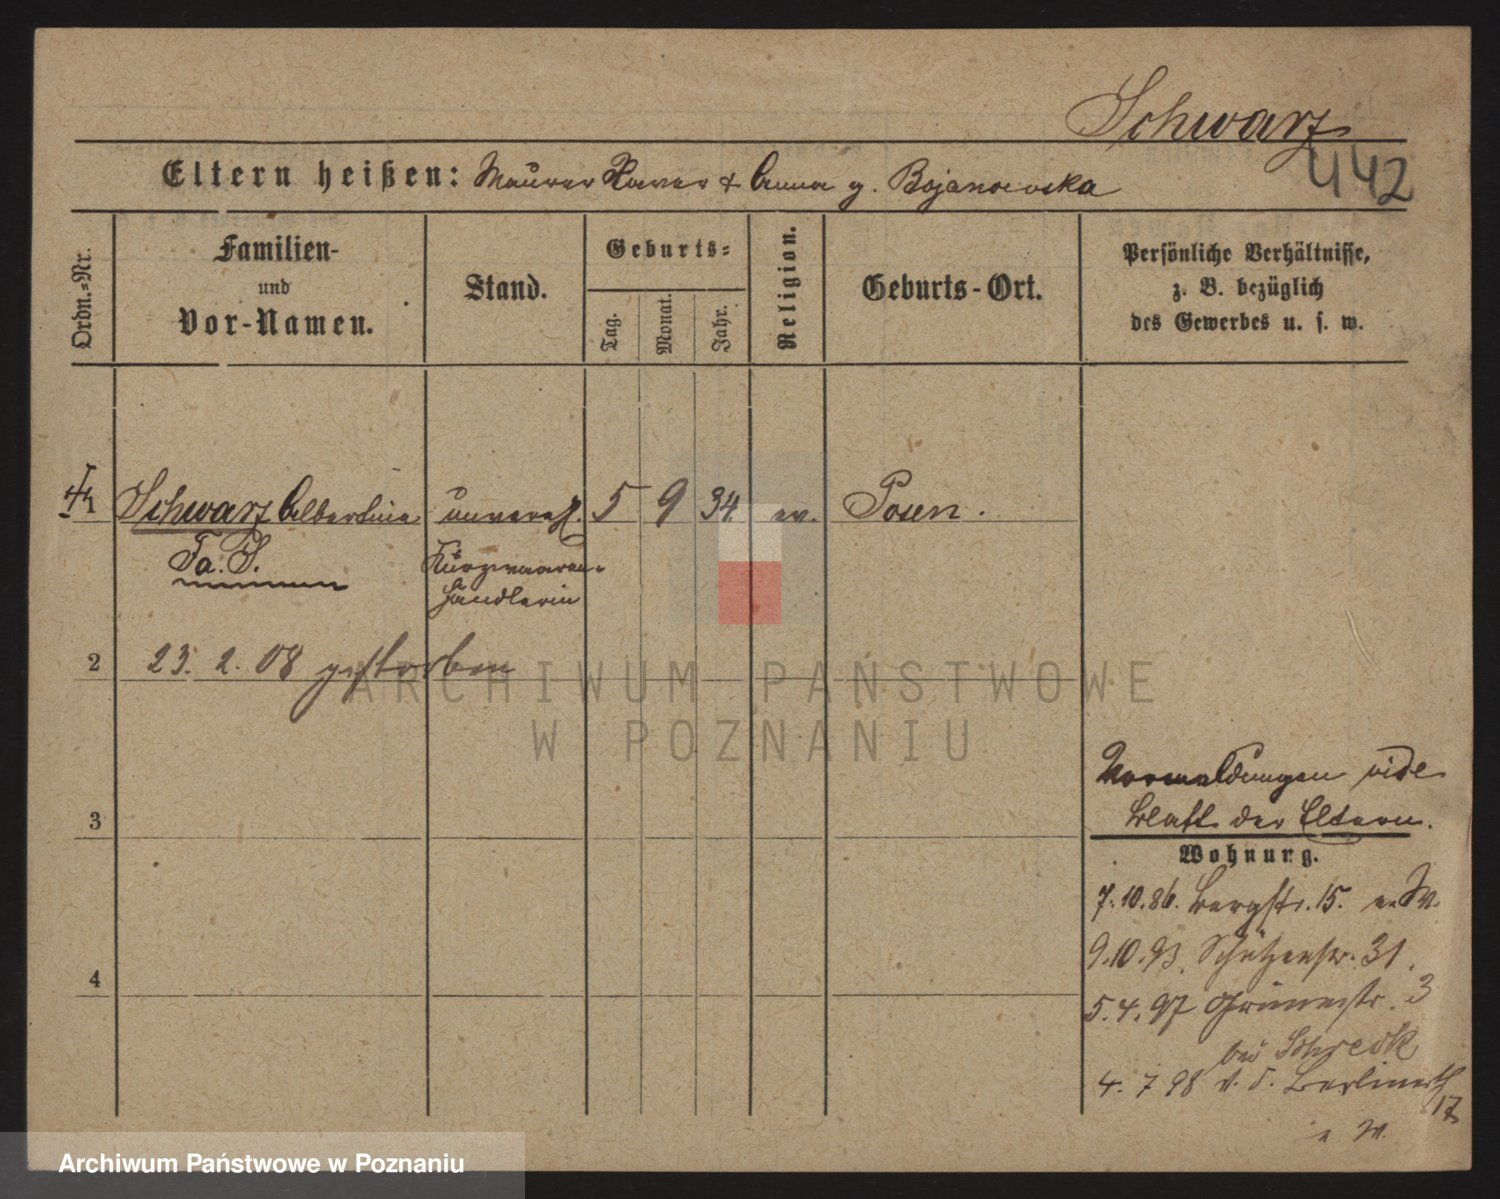 Schwarz
442
Eltern heißen: Maurer Xaver & Anna g. Bojanowska
Ordn.-Nr.
Familien- und Vor-Namen.
Stand.
Geburts-
Tag.
Monat.
Jahr.
Religion.
Geburts-Ort.
Persönliche Verhältnisse,
z. B. bezüglich
des Gewerbes u. s. w.
1 Schwarz Albertine unvereh. 5 9 34. ev. Posen.
Fa. S. Kurzwaaren-
händlerin
2 23. 2. 08 gestorben
3
4
Vormeldungen vide
Blatt der Eltern.
Wohnung.
7.10.86. Bergstr. 15. e. W.
9.10.93. Schützenstr. 31.
5.4.97 Grünestr. 3
bei Schreck
4. 7 98 v. d. Berlinerth
17
e W.
ARCHIWUM PAŃSTWOWE
W POZNANIU
Archiwum Państwowe w Poznaniu